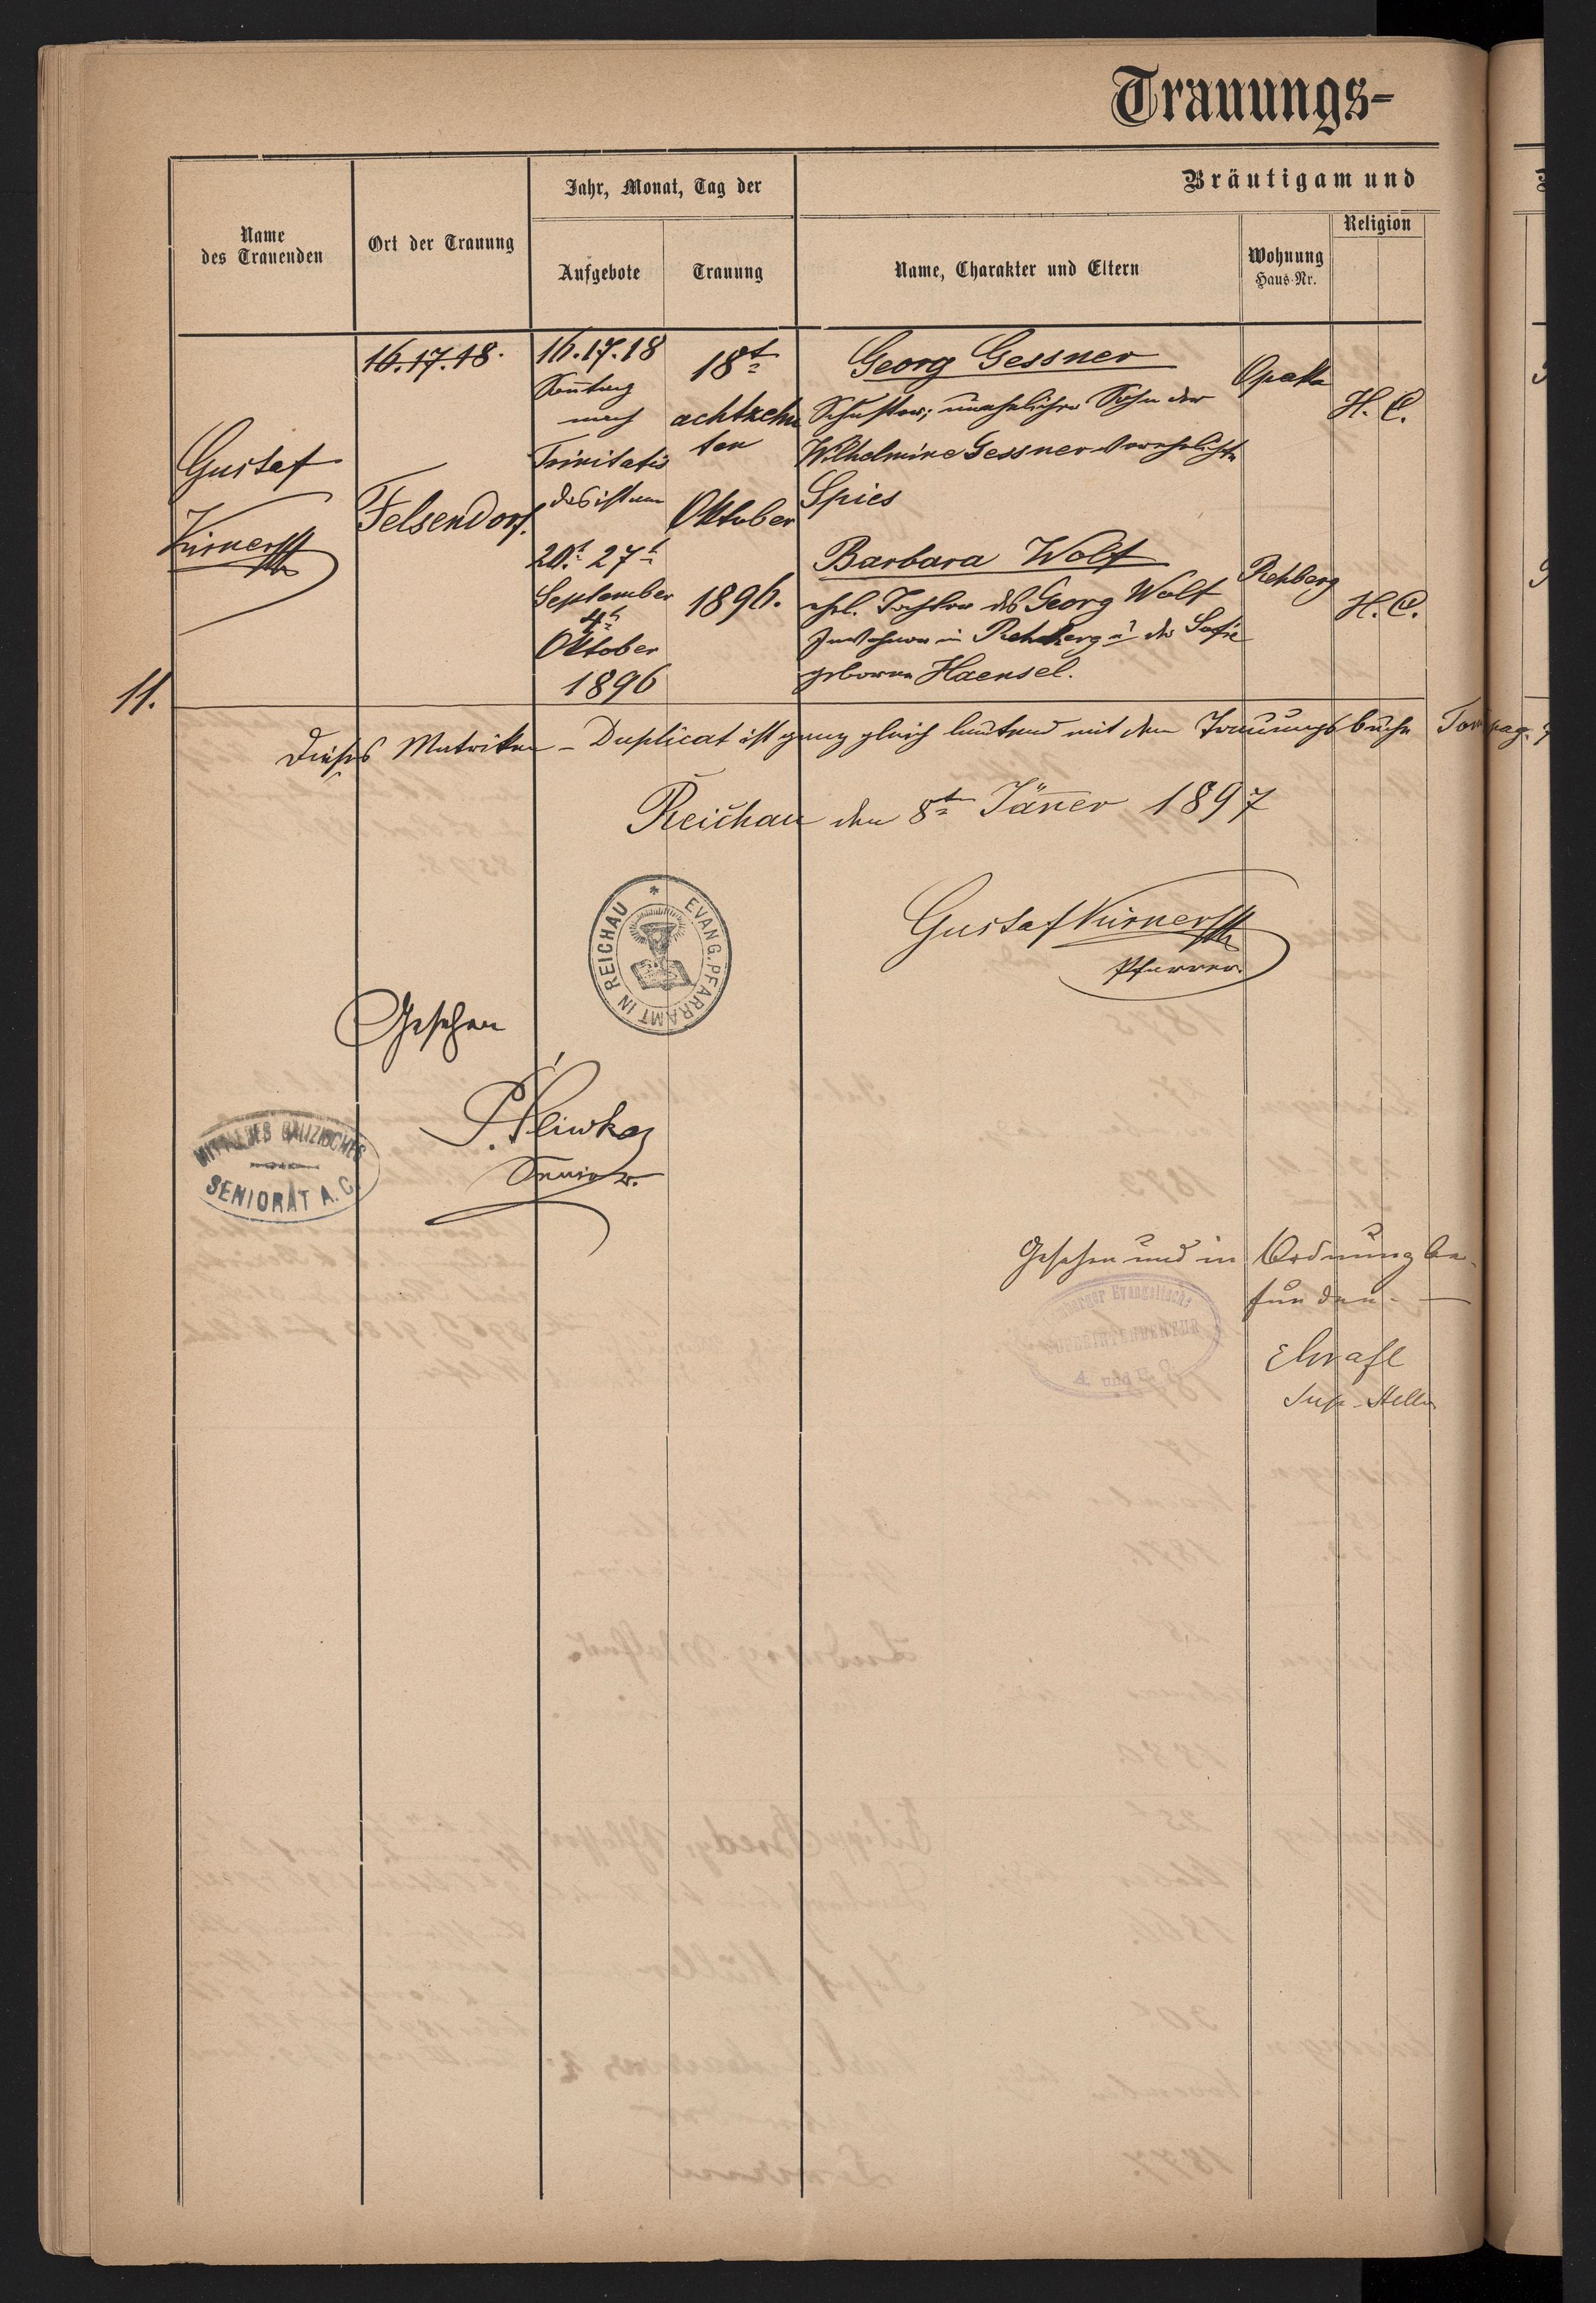 Trauungs-
Name
des Trauenden
Ort der Trauung
Jahr, Monat, Tag der
Aufgebote
Trauung
Bräutigam und
Name, Charakter und Eltern
Wohnung
Haus-Nr.
Religion
11.
Gustaf
Kürner
16.17.18.
Felsendorf.
16.17.18
Sonntag
nach
Trinitatis
das ist am
20t. 27t
September
4t
Oktober
1896
18t
achtzehn
ten
Oktober
1896.
Georg Gessner
Schuster; unehelicher Sohn der
Wilhelmine Gessner verehelichte
Spies
Opaka
H. C.
Barbara Wolf
ehel. Tochter des Georg Wolf
Inwohner in Rehberg u. der Sofie
geborne Haensel.
Rehberg
H. C.
Dieses Matriken-Duplicat ist ganz gleich lautend mit dem Trauungsbuche Tom pag.
Reichau den 8ten Jänner 1897
EVANG. PFARRAMT IN REICHAU
Gustaf Kürner
Pfarrer.
Gesehen
P. Śliwka
Senior.
MITTLERES GALIZISCHES
SENIORAT A. C.
Gesehen und in Ordnung be-
funden.
Lemberger Evangelische
SUPERINTENDENTUR
A. und H. B.
Sup. Stellv